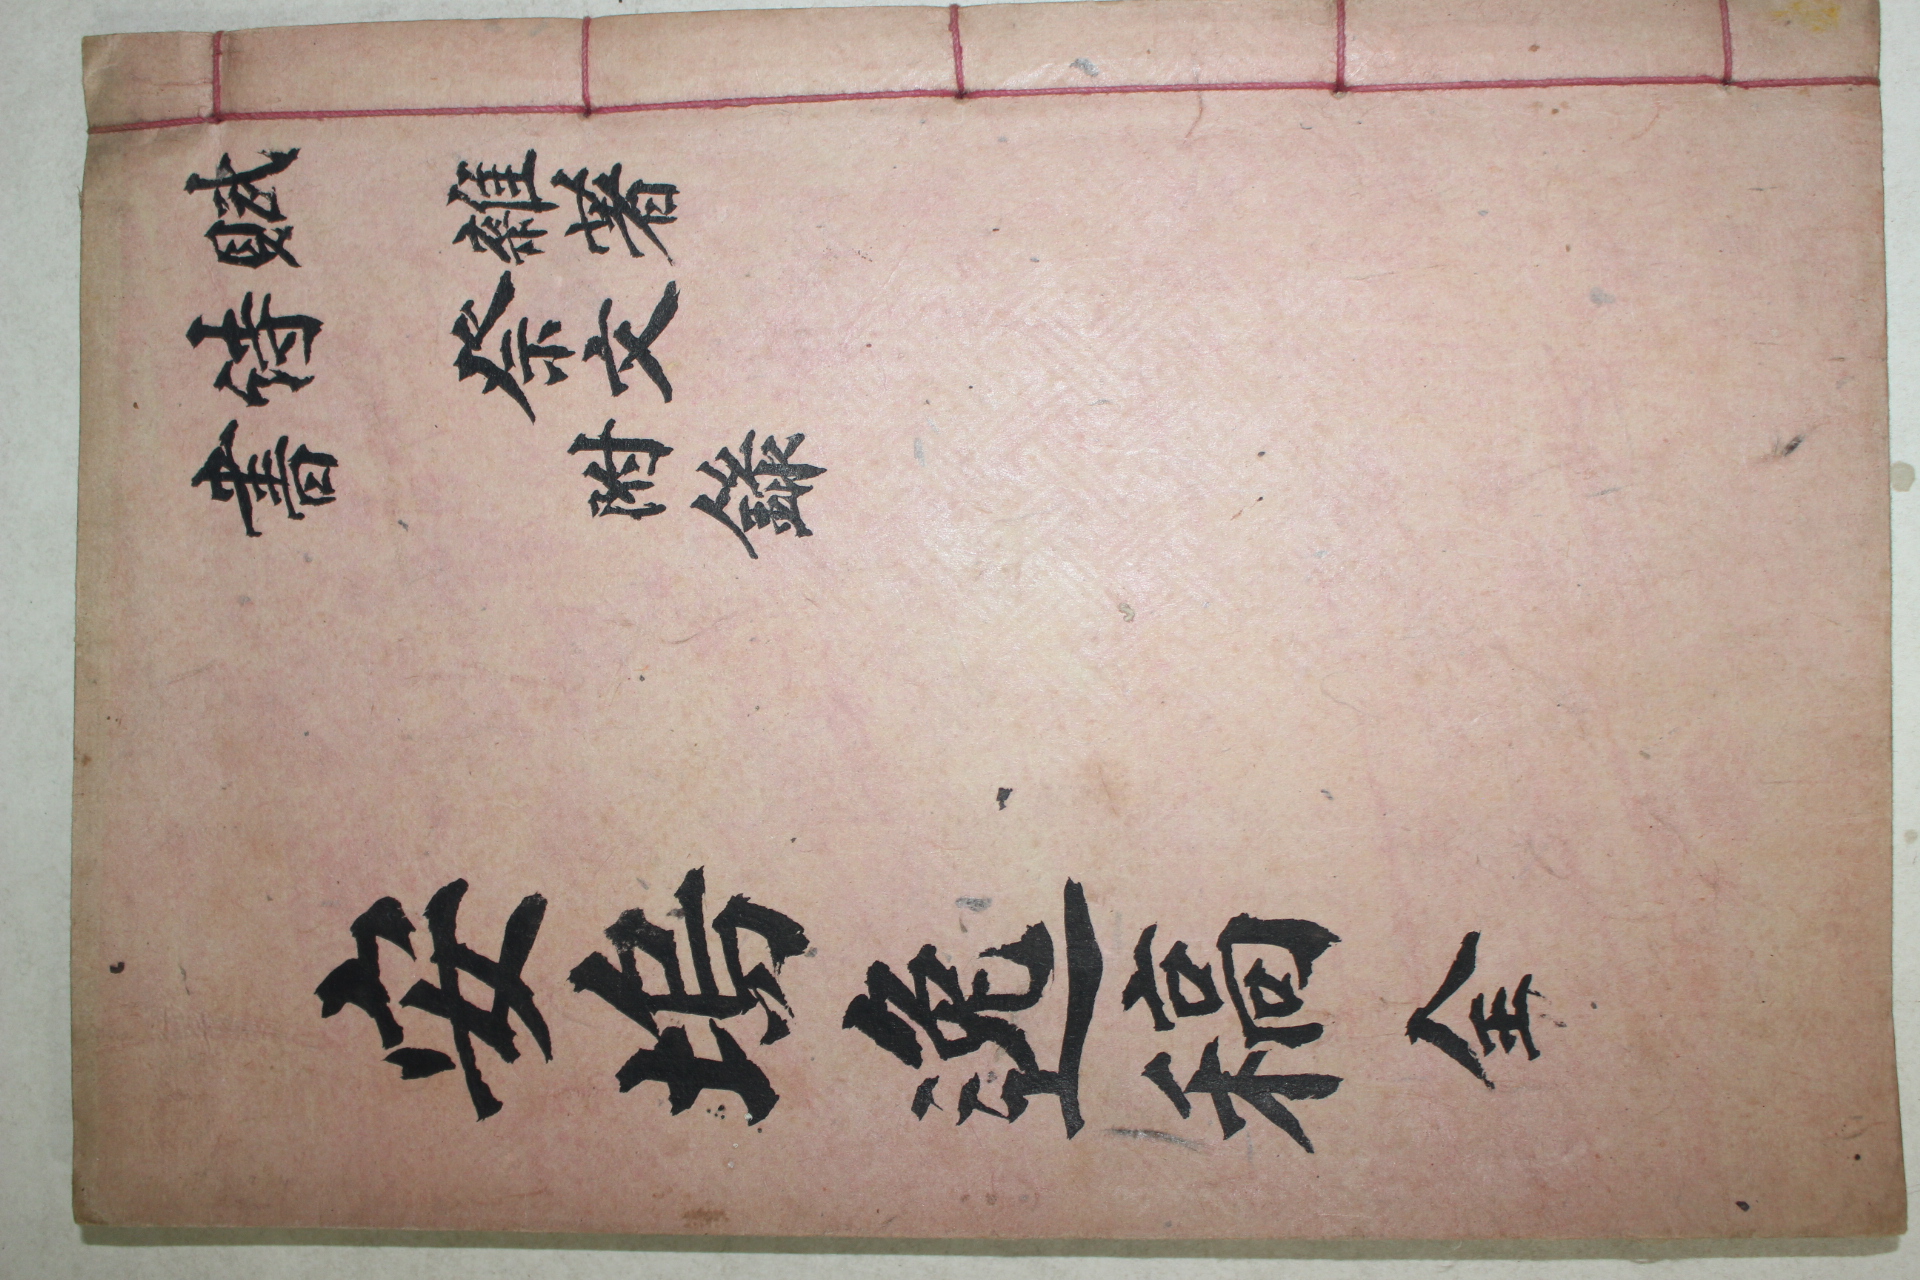 賦
詩
書
雜著
祭文
附錄
安塢逸稿 全